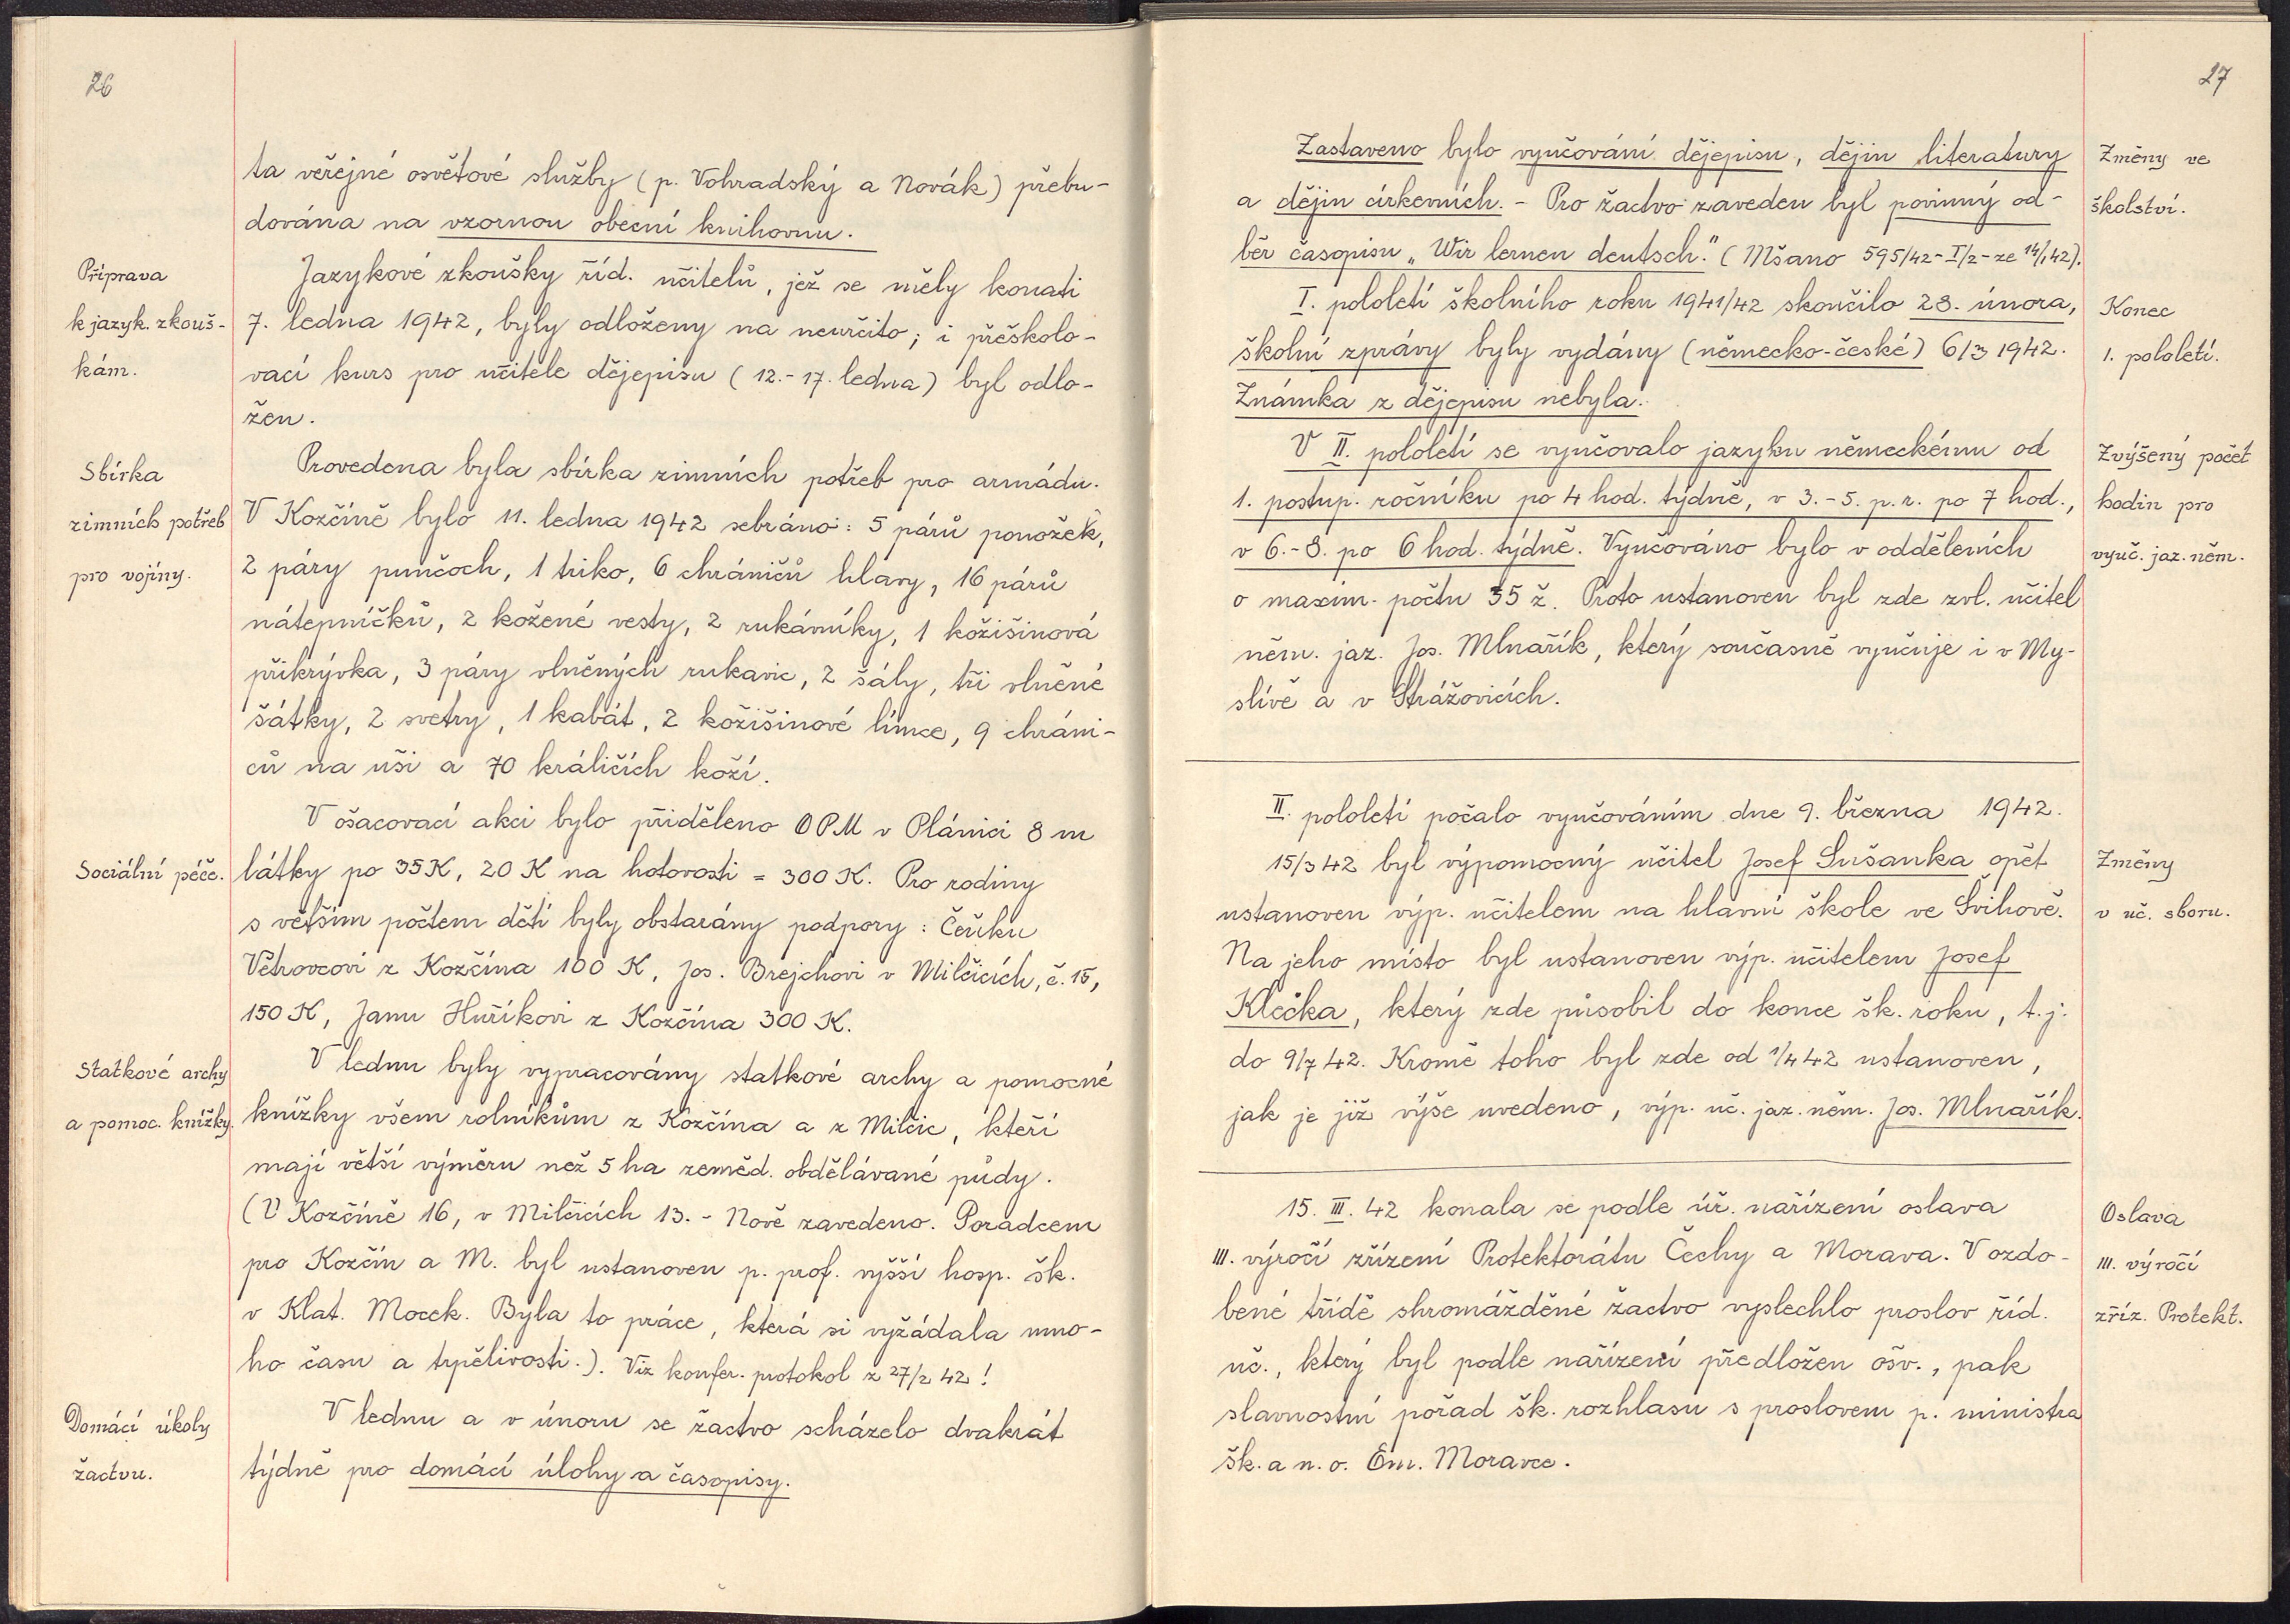 26
ta veřejné osvětové služby (p. Vohradský a Novák) přebu-
dována na vzornou obecní knihovnu.
Příprava
k jazyk. zkouš-
kám.
Jazykové zkoušky říd. učitelů, jež se měly konati
7. ledna 1942, byly odloženy na neurčito; i přeškolo-
vací kurs pro učitele dějepisu (12.-17. ledna) byl odlo-
žen.
Sbírka
zimních potřeb
pro vojíny.
Provedena byla sbírka zimních potřeb pro armádu.
V Kozčíně bylo 11. ledna 1942 sebráno: 5 párů ponožek,
2 páry punčoch, 1 triko, 6 chráničů hlavy, 16 párů
nátepníčků, 2 kožené vesty, 2 rukávníky, 1 kožišinová
přikrývka, 3 páry vlněných rukavic, 2 šály, tři vlněné
šátky, 2 svetry, 1 kabát, 2 kožišinové límce, 9 chráni-
čů na uši a 70 králičích koží.
Sociální péče.
V ošacovací akci bylo přiděleno OPM v Plánici 8 m
látky po 35 K, 20 K na hotovosti = 300 K. Pro rodiny
s větším počtem dětí byly obstarány podpory: Čeňku
Větrovcovi z Kozčína 100 K, Jos. Brejchovi v Milčicích, č. 15,
150 K, Janu Huříkovi z Kozčína 300 K.
Statkové archy
a pomoc. knížky.
V lednu byly vypracovány statkové archy a pomocné
knížky všem rolníkům z Kozčína a z Milčic, kteří
mají větší výměru než 5 ha zeměd. obdělávané půdy.
(V Kozčíně 16, v Milčicích 13. - Nově zavedeno. Poradcem
pro Kozčín a M. byl ustanoven p. prof. vyšší hosp. šk.
v Klat. Mocek. Byla to práce, která si vyžádala mno-
ho času a trpělivosti.). Viz konfer. protokol z 27/2 42!
Domácí úkoly
žactvu.
V lednu a v únoru se žactvo scházelo dvakrát
týdně pro domácí úlohy a časopisy.
27
Zastaveno bylo vyučování dějepisu, dějin literatury
a dějin církevních. - Pro žactvo zaveden byl povinný od-
běr časopisu „Wir lernen deutsch." (Mšano 595/42-I/2-ze 14/1 42).
Změny ve
školství.
I. pololetí školního roku 1941/42 skončilo 28. února,
školní zprávy byly vydány (německo-české) 6/3 1942.
Známka z dějepisu nebyla.
Konec
1. pololetí.
V II. pololetí se vyučovalo jazyku německému od
1. postup. ročníku po 4 hod. týdně, v 3.-5. p. r. po 7 hod.,
v 6.-8. po 6 hod. týdně. Vyučováno bylo v odděleních
o maxim. počtu 35 ž. Proto ustanoven byl zde zvl. učitel
něm. jaz. Jos. Mlnařík, který současně vyučuje i v My-
slívě a v Strážovicích.
Zvýšený počet
hodin pro
vyuč. jaz. něm.
II. pololetí počalo vyučováním dne 9. března 1942.
15/3 42 byl výpomocný učitel Josef Sušanka opět
ustanoven výp. učitelem na hlavní škole ve Švihově.
Na jeho místo byl ustanoven výp. učitelem Josef
Klečka, který zde působil do konce šk. roku, t. j.
do 9/7 42. Kromě toho byl zde od 1/4 42 ustanoven,
jak je již výše uvedeno, výp. uč. jaz. něm. Jos. Mlnařík.
Změny
v uč. sboru.
15. III. 42 konala se podle úř. nařízení oslava
III. výročí zřízení Protektorátu Čechy a Morava. V ozdo-
bené třídě shromážděné žactvo vyslechlo proslov říd.
uč., který byl podle nařízení předložen ošv., pak
slavnostní pořad šk. rozhlasu s proslovem p. ministra
šk. a n. o. Em. Moravce.
Oslava
III. výročí
zříz. Protekt.